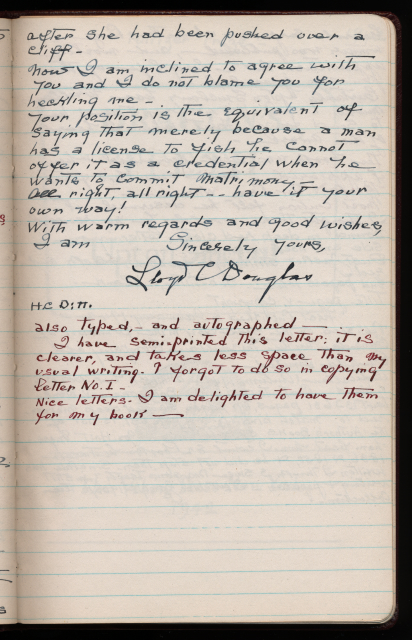 after she had been pushed over a
cliff-
Now I am inclined to agree with
you and I do not blame you for
heckling me-
Your position is the equivalent of
saying that merely because a man
has a license to fish he cannot
offer it as a credential when he
wants to commit matrimony
All right, all right -- have it your
own way!
With warm regards and good wishes,
I am Sincerely yours,
Lloyd C Douglas
also typed,- and autographed —
I have semi-printed this letter; it is
clearer, and takes less space than my
usual writing. I forgot to do so in copying
letter No. I-
Nice letters. I am delighted to have them
for my book —